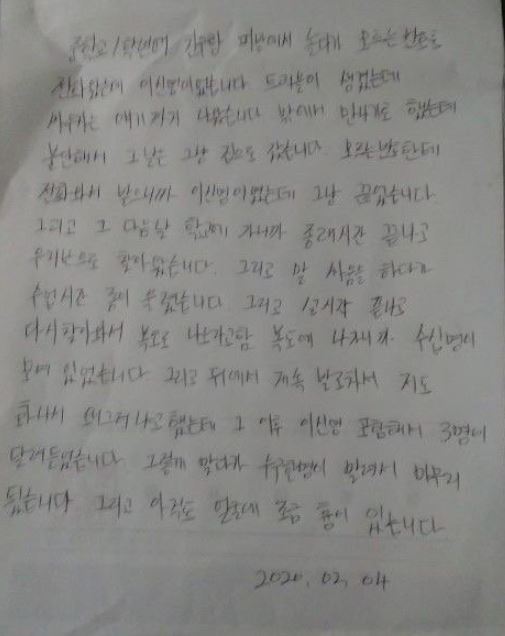 중학교 1학년때 친구랑 피방에서 놀다가 모르는 번호로
전화왔는데 이신영이었습니다 트러블이 생겼는데
싸우자는 얘기까지 나왔습니다 밖에서 만나기로 했는데
불안해서 그날은 그냥 집으로 갔습니다. 모르는번호한테
전화와서 받으니까 이신영이였는데 그냥 끊었습니다.
그리고 그 다음날 학교에 가니까 종례시간 끝나고
우리반으로 찾아왔습니다. 그리고 말 싸움을 하다가
수업시간 종이 울렸습니다. 그리고 1교시가 끝나고
다시찾아와서 복도로 나오라고함 복도에 나가니까 수십명이
모여 있었습니다. 그리고 뒤에서 계속 발로차서 지도
화나서 왜그러냐고 했는데 그 이후 이신영 포함해서 3명이
달려들었습니다. 그렇게 맞다가 수십명이 말려서 마무리
됬습니다. 그리고 아직도 얼굴에 조금 흉이 있습니다
2020. 02. 04